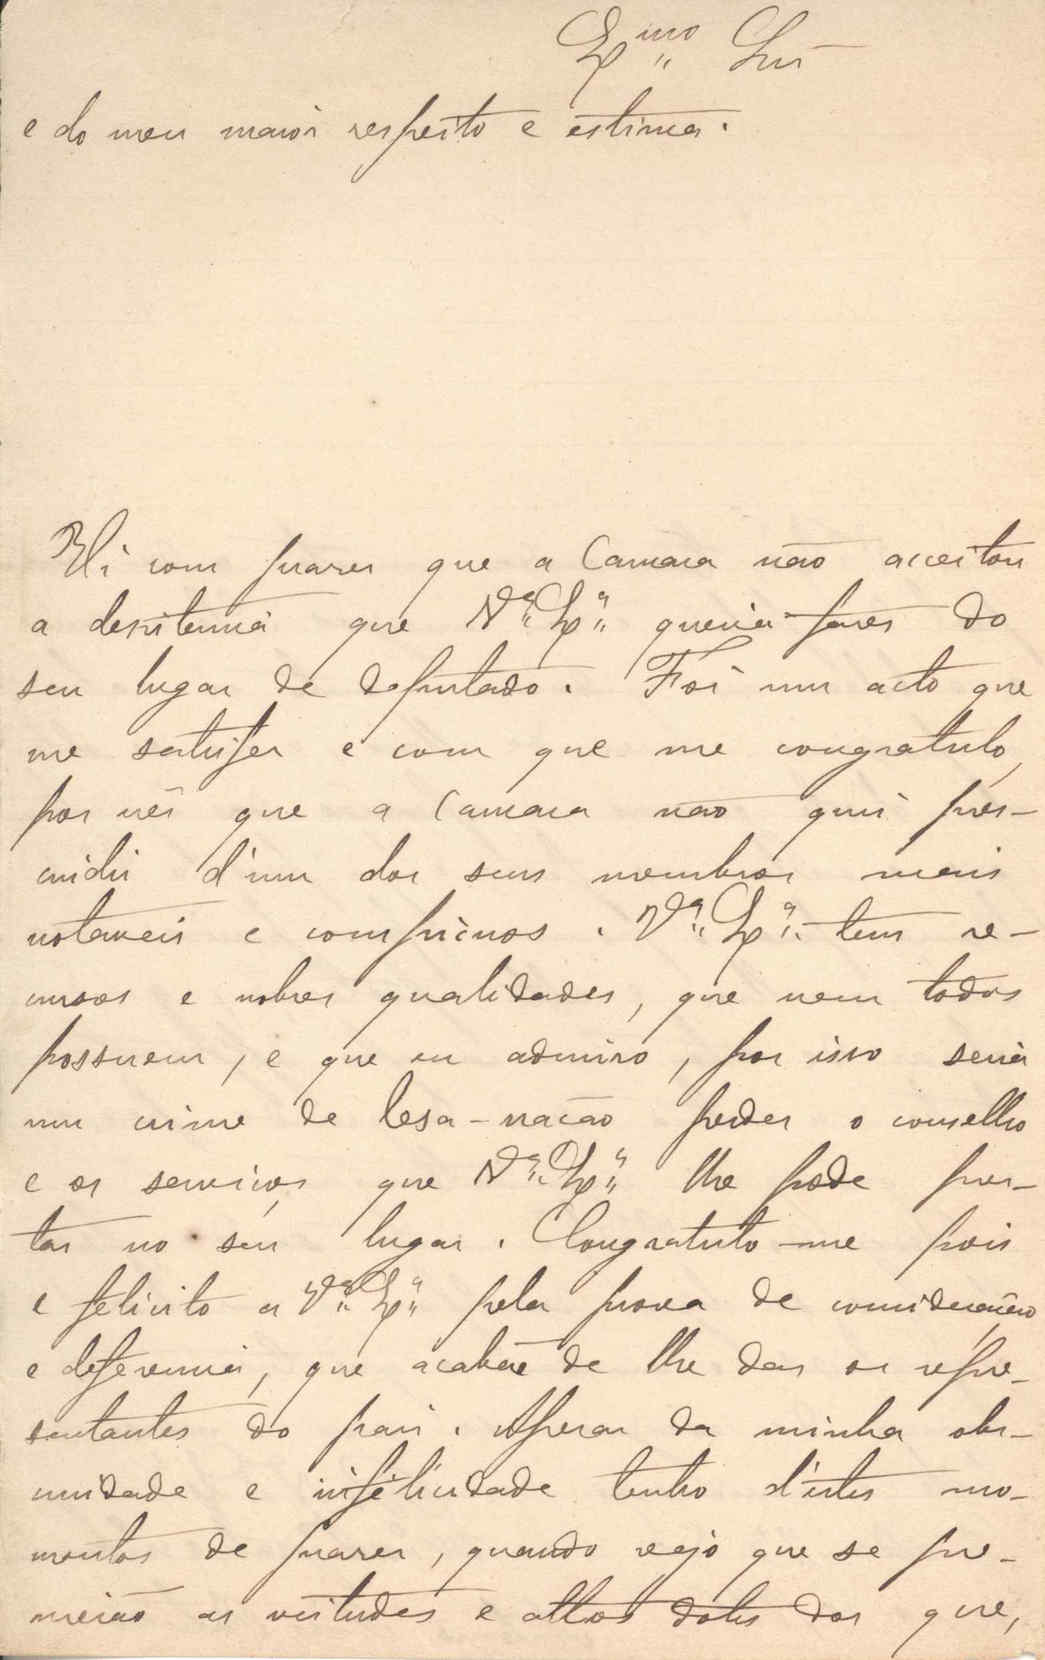 Ex.mo Snr
e do meu maior respeito e estima.
Vi com prazer que a Camara não acceitou
a desistencia que V.a Ex.a queria fazer do
seu lugar de deputado. Foi um acto que
me satisfez e com que me congratulo,
por vêr que a Camara não quis pres-
cindir d'um dos seus membros mais
notaveis e comspicuos. V.a Ex.a tem re-
cursos e nobres qualidades, que nem todos
possuem, e que eu admiro, por isso seria
um crime de lesa-nação perder o conselho
e os serviços que V.a Ex.a lhe póde pres-
tar no seu lugar. Congratulo-me pois
e felicito a V.a Ex.a pela prova de consideração
e deferencia, que acabão de lhe dar os repre-
sentantes do pais. Apesar da minha obs-
curidade e infelicidade tenho d'estes mo-
mentos de prazer, quando vejo que se pre-
meião as virtudes e altos dotes dos que,